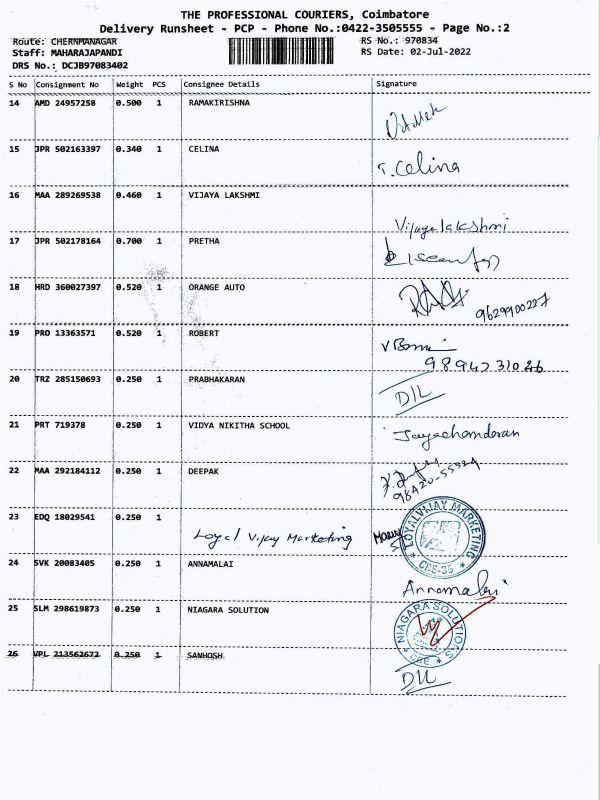 THE PROFESSIONAL COURIERS, Coimbatore
Delivery Runsheet - PCP - Phone No.:0422-3505555 - Page No.:2
Route: CHERNMANAGAR RS No.: 970834
Staff: MAHARAJAPANDI RS Date: 02-Jul-2022
DRS No.: DCJB97083402
S No Consignment No Weight PCS Consignee Details Signature
14 AMD 24957258 0.500 1 RAMAKIRISHNA
15 JPR 502163397 0.340 1 CELINA T. Celina
16 MAA 289269538 0.460 1 VIJAYA LAKSHMI Vijayalakshmi
17 JPR 502178164 0.700 1 PRETHA
18 HRD 360027397 0.520 1 ORANGE AUTO 96299100227
19 PRO 13363571 0.520 1 ROBERT
9894731026
20 TRZ 285150693 0.250 1 PRABHAKARAN D/L
21 PRT 719378 0.250 1 VIDYA NIKITHA SCHOOL Jayachandaran
22 MAA 292184112 0.250 1 DEEPAK
98420-55524
23 EDQ 18029541 0.250 1 Loyal Vijay Marketing LOYALVIJAY MARKETING * CBE-35 *
24 SVK 20083405 0.250 1 ANNAMALAI Annamalai
25 SLM 298619873 0.250 1 NIAGARA SOLUTION NIAGARA SOLUTIONS * CBE *
26 VPL 213562672 0.250 1 SANHOSH D/L